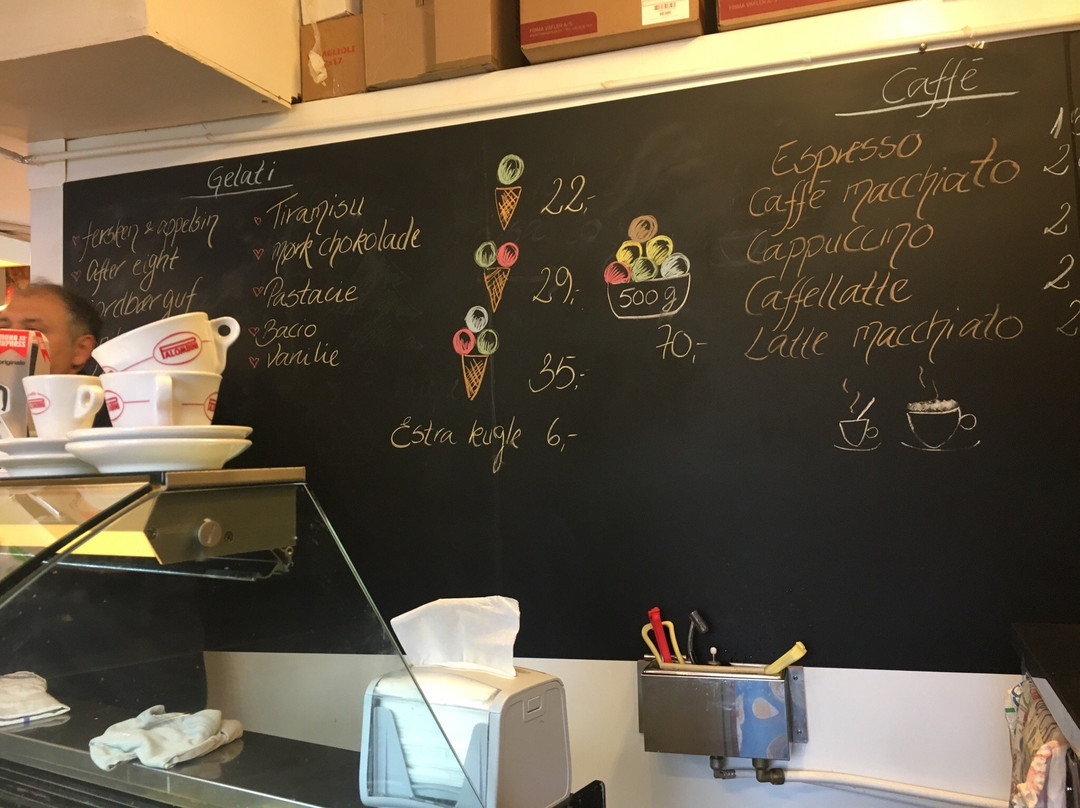 Gelati
fersken & appelsin
After eight
Tiramisu
mørk chokolade
Pastacie
Bacio
Vanilie
22,-
29,-
35,-
Estra kugle 6,-
500 g
70,-
Caffé
Espresso
Caffé macchiato 2
Cappuccino 2
Caffellatte 2
Latte macchiato 2
PALOMBINI